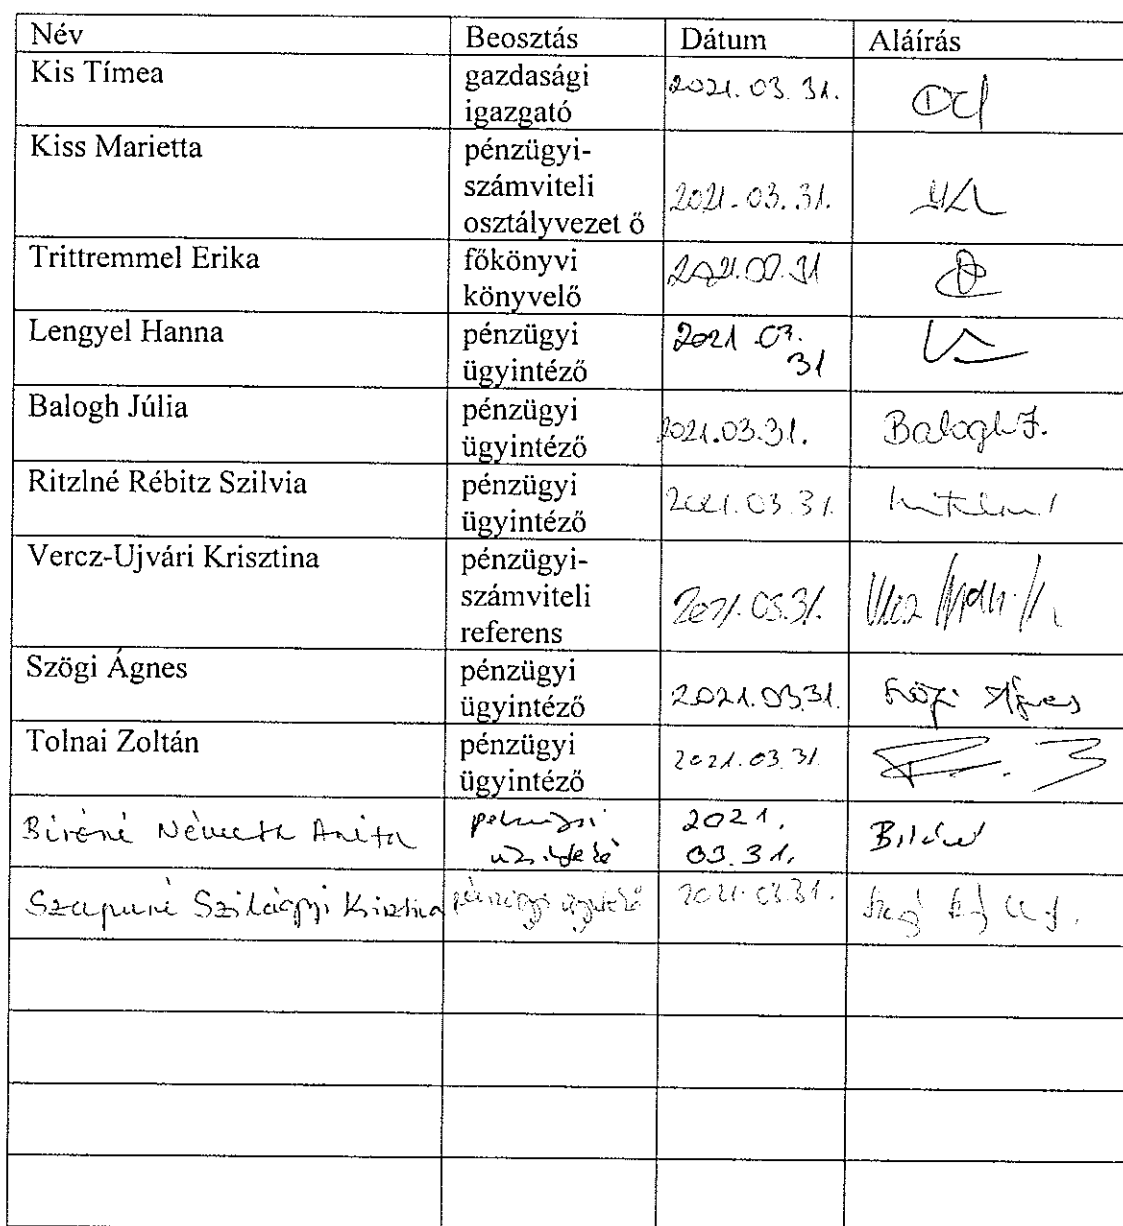 Név Beosztás Dátum Aláírás
Kis Tímea gazdasági igazgató 2021. 03. 31.
Kiss Marietta pénzügyi-számviteli osztályvezet ő 2021. 03. 31.
Trittremmel Erika főkönyvi könyvelő 2021.03.31
Lengyel Hanna pénzügyi ügyintéző 2021 03. 31
Balogh Júlia pénzügyi ügyintéző 2021.03.31. Balogh J.
Ritzlné Rébitz Szilvia pénzügyi ügyintéző 2021.03.31.
Vercz-Ujvári Krisztina pénzügyi-számviteli referens 2021.03.31.
Szögi Ágnes pénzügyi ügyintéző 2021.03.31. Szögi Ágnes
Tolnai Zoltán pénzügyi ügyintéző 2021.03.31.
Biróné Németh Anita pénzügyi ügyintéző 2021. 03.31.
Szapuné Szilágyi Krisztina pénzügyi ügyintéző 2021.03.31.